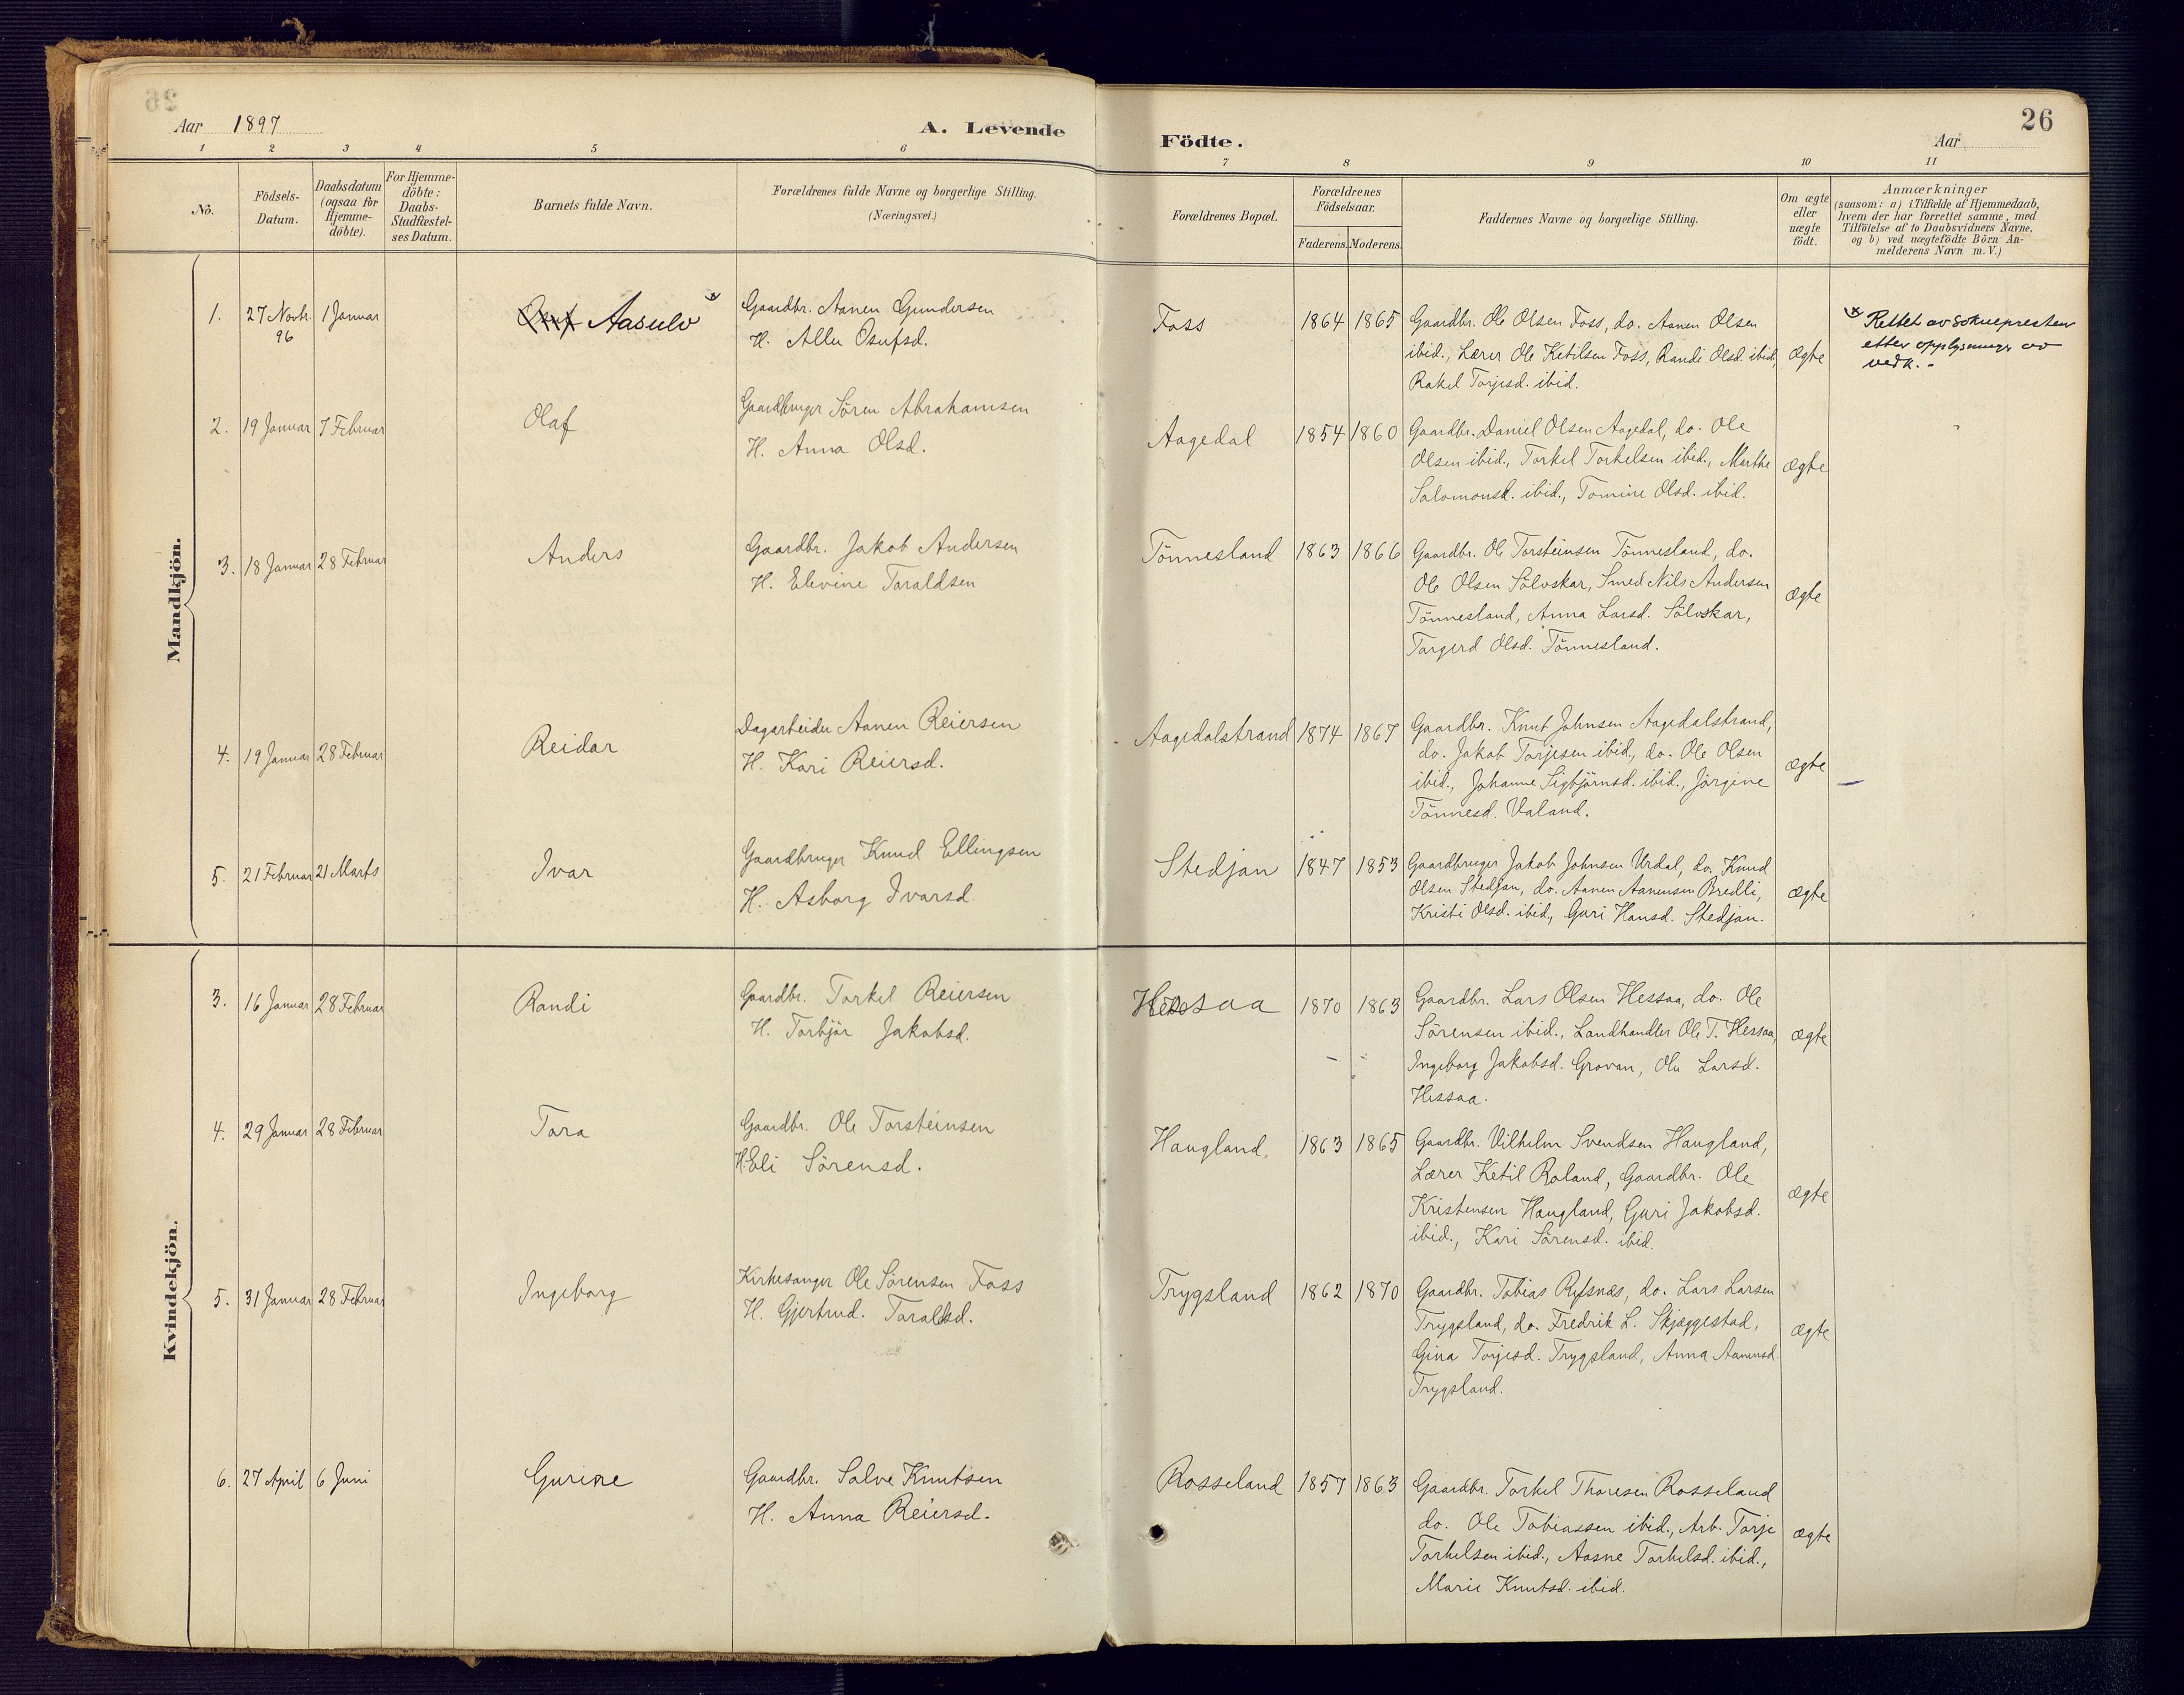 26
Aar 1897
A. Levende Födte.
Aar
1 2 3 4 5 6 7 8 9 10 11
No.
Födsels-
Datum.
Daabsdatum
(ogsaa for
Hjemme-
döbte).
For Hjemme-
döbte:
Daabs-
Stadfæstel-
ses Datum.
Barnets fulde Navn.
Forældrenes fulde Navne og borgerlige Stilling.
(Næringsvei.)
Forældrenes Bopæl.
Forældrenes
Födselsaar.
Faderens. Moderens.
Faddernes Navne og borgerlige Stilling.
Om ægte
eller
uægte
födt.
Anmærkninger
(saasom: a) i Tilfælde af Hjemmedaab,
hvem der har forrettet samme, med
Tilföielse af to Daabsvidners Navne,
og b) ved uægtefödte Börn An-
melderens Navn m. V.)
Mandkjön.
1. 27 Novbr. 96 1 Januar
Aasulv x
Gaardbr. Aanen Gundersen
H. Osufsd.
Foss 1864 1865
Gaardbr. Ole Olsen Foss, do. Aanen Olsen
ibid., Lærer Ole Ketilsen Foss, Randi Olsd. ibid,
Rakel Torjesd. ibid.
ægte
x Rettet av soknepresten
etter opplysninger av
vedk.-
2. 19 Januar 7 Februar
Olaf
Gaardbruger Sören Abrahamsen
H. Anna Olsd.
Aagedal 1854 1860
Gaardbr. Daniel Olsen Aagedal, do. Ole
Olsen ibid., Torkel Torkelsen ibid., Marthe
Salomonsd. ibid., Tomine Olsd. ibid.
ægte
3. 18 Januar 28 Februar
Anders
Gaardbr. Jakob Andersen
H. Elevine Taraldsen
Tönnesland 1863 1866
Gaardbr. Ole Torsteinsen Tönnesland, do.
Ole Olsen Sölvskar, Smed Nils Andersen
Tönnesland, Anna Larsd. Sölvskar,
Targerd Olsd. Tönnesland.
ægte
4. 19 Januar 28 Februar
Reidar
Dagarbeider Aanen Reiersen
H. Kari Reiersd.
Aagedalstrand 1874 1867
Gaardbr. Knut Johnsen Aagedalstrand,
do. Jakob Torjesen ibid, do. Ole Olsen
ibid., Johanne Sigbjörnsd. ibid., Jörgine
Tönnesd. Valand.
ægte
5. 21 Februar 21 Marts
Ivar
Gaardbruger Knud Ellingsen
H. Asborg Ivarsd
Stedjan 1847 1853
Gaardbruger Jakob Johnsen Urdal, do. Knud
Olsen Stedjan, do. Aanen Aanensen Bredli,
Kristi Olsd. ibid, Guri Hansd. Stedjan.
ægte
Kvindekjön.
3. 16 Januar 28 Februar
Randi
Gaardbr. Torkel Reiersen
H. Torbjör Jakobsd.
Hessaa 1870 1863
Gaardbr. Lars Olsen Hessaa, do. Ole
Sörensen ibid., Landhandler Ole T. Hessaa,
Ingeborg Jakobsd. Grovan, Larsd.
Hessaa.
ægte
4. 29 Januar 28 Februar
Tora
Gaardbr. Ole Torsteinsen
H. Eli Sörensd.
Haugland. 1863 1865
Gaardbr. Vilhelm Svendsen Haugland,
Lærer Ketil Røland, Gaardbr. Ole
Kristensen Haugland, Guri Jakobsd.
ibid., Kari Sörensd. ibid.
ægte
5. 31 Januar 28 Februar
Ingeborg
Kirkesanger Ole Sörensen Foss
H. Gjertrud. Taraldsd.
Trygsland 1862 1870
Gaardbr. Tobias Refsnæs, do. Lars Larsen
Trygsland, do. Fredrik L. Skjæggestad,
Gina Torjesd. Trygsland, Anna Aanensd.
Trygsland.
ægte
6. 27 April 6 Juni
Gurine
Gaardbr. Salve Knutsen
H. Anna Reiersd.
Rosseland 1857 1863
Gaardbr. Torkel Thoresen Rosseland
do. Ole Tobiassen ibid., Arb. Torje
Torkelsen ibid., Aasne Torkelsd. ibid.,
Marie Knutsd. ibid.
ægte